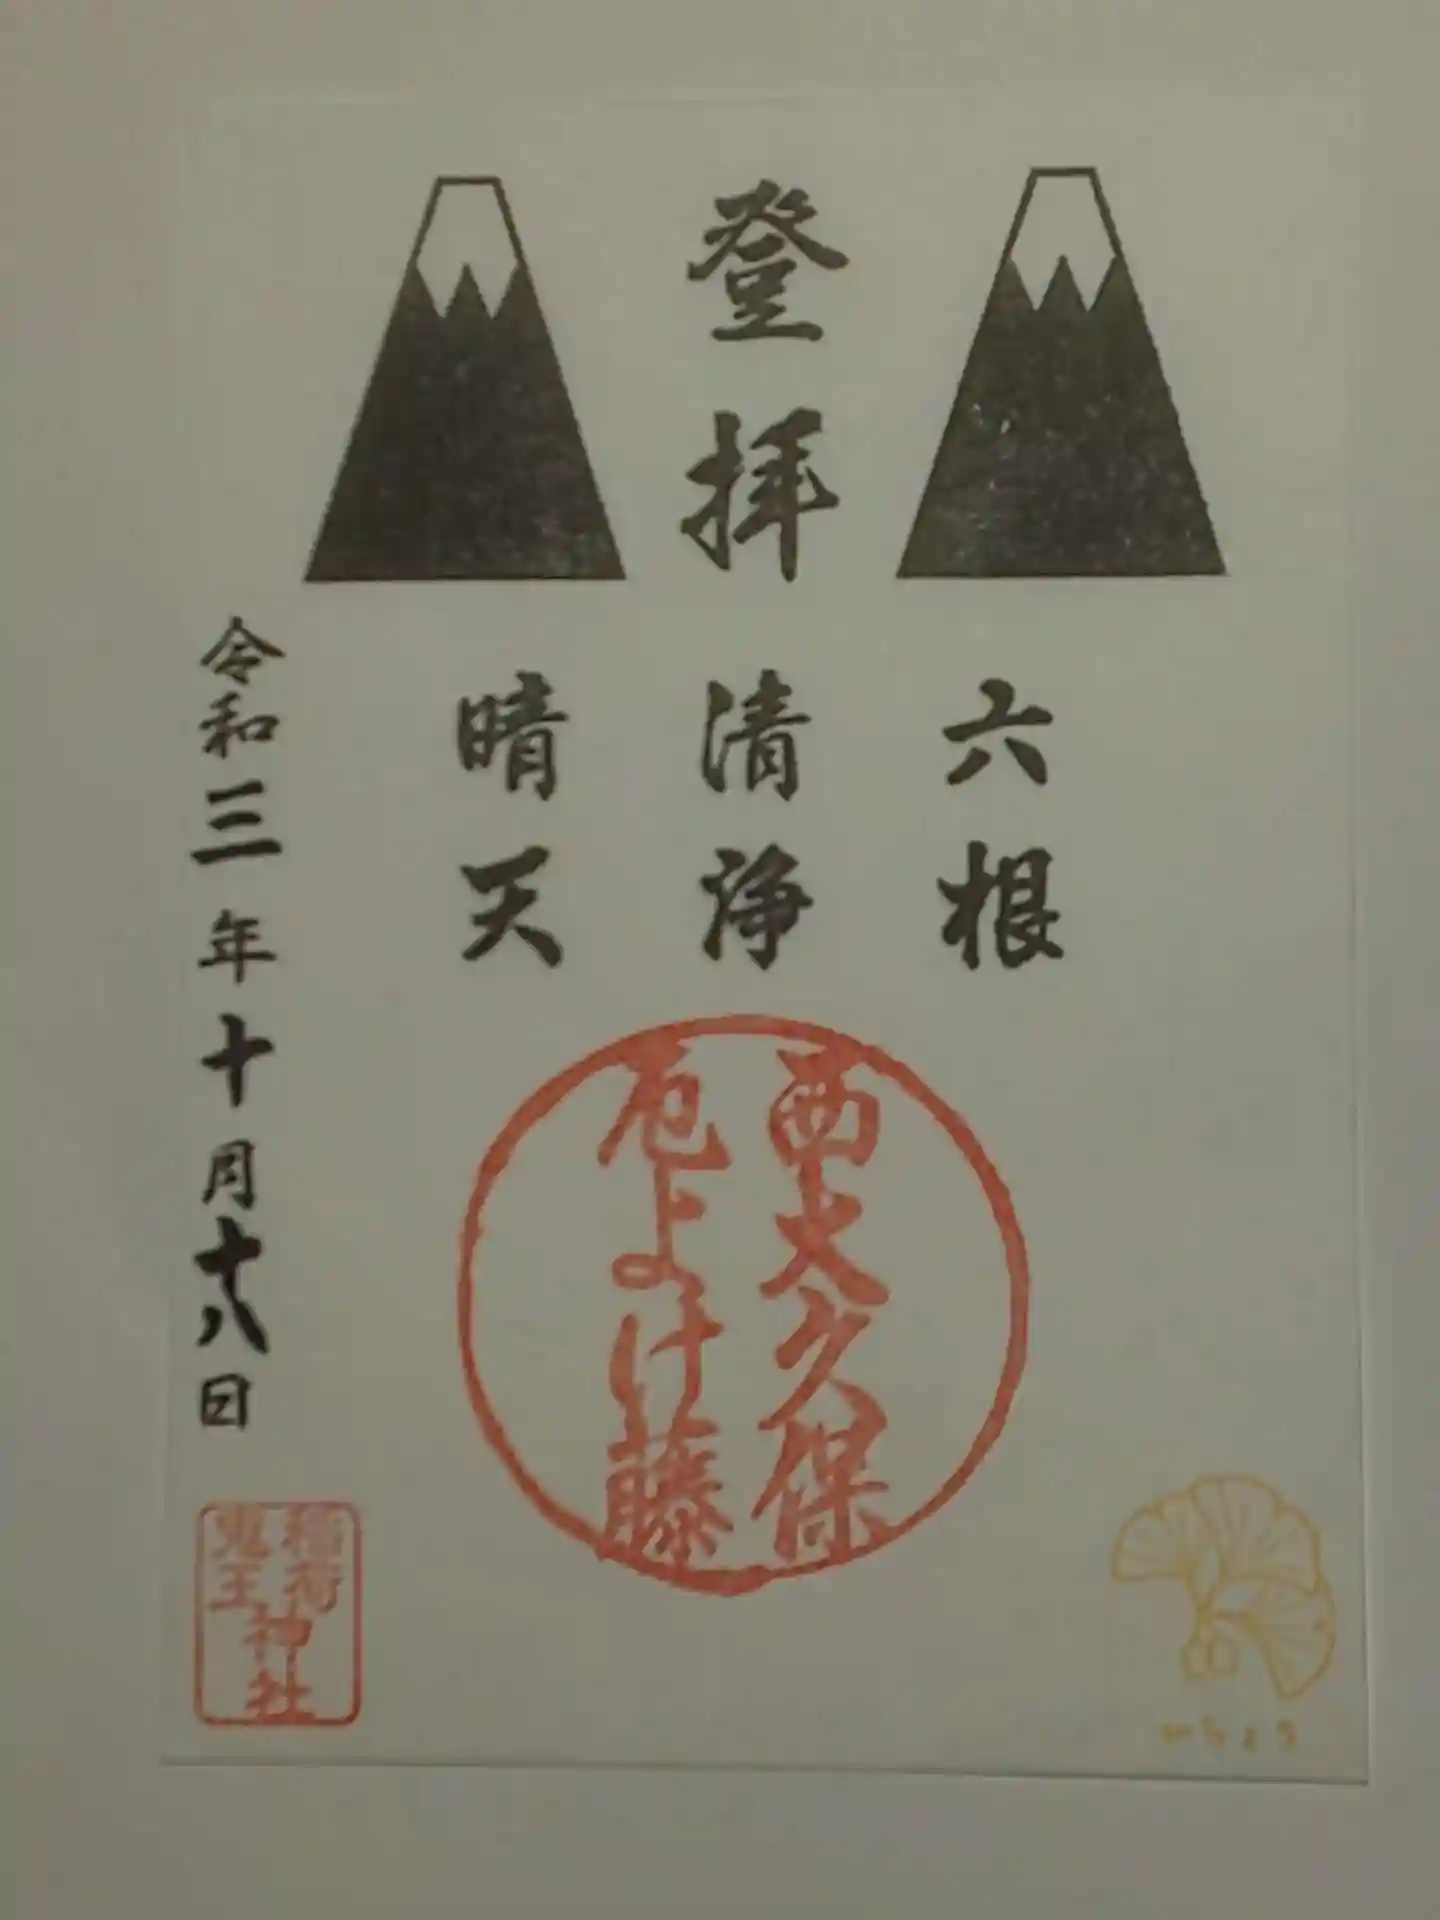 登拝
六根
清浄
晴天
西大久保
厄よけ藤
令和三年十月十八日
稲荷
鬼王
神社
いちょう